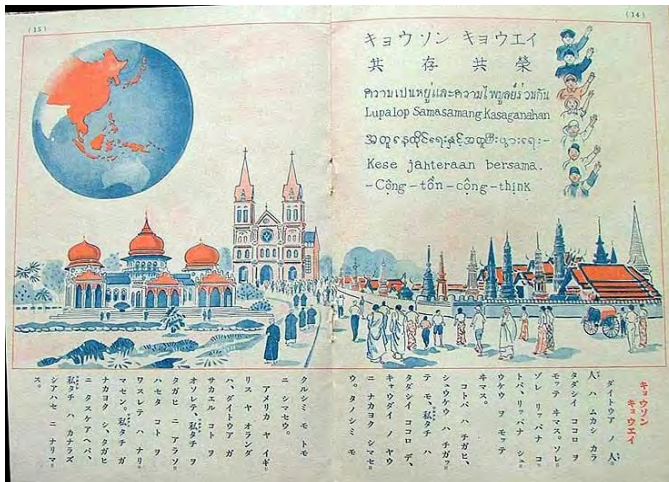 (14)
キョウソン キョウエイ
共存共榮
ความเปนหยู่และความไพบูลย์ร่วมกัน
Lupalop Samasamang Kasaganahan
အတူနေထိုင်ရေးနှင့်အတူစီးပွားရေး-
Kese jahteraan bersama.
-Cộng-tôn-công-thịnk
キョウソン
キョウエイ
ダイトウア ノ 人
人 ハ ムカシ カラ
タダシイ ココロ ヲ
モッテ ヰマス。ソレ
ゾレ リッパナ コ
トバ、リッパナ シュ
ウケウ ヲ モッテ
ヰマス。
コトバ ハ チガヒ、
シュウケウ ハ チガッ
テ モ、私タチ ハ
タダシイ ココロ デ、
キャウダイ ノ ヤウ
ニ ナカヨク シマセ
ウ。タノシミ モ
(15)
クルシミ モ トモ
ニ シマセウ。
アメリカ ヤ イギ
リス ヤ オランダ
ハ、ダイトウア ガ
サカエル コト ヲ
オソレテ、私タチ ヲ
タガヒ ニ アラソ
ハセタ コト ヲ
ワスレテ ハ ナリ
マセン。私タチ ガ
ナカヨク シ、タガヒ
ニ タスケアヘバ、
私タチ ハ カナラズ
シアハセ ニ ナリマ
ス。